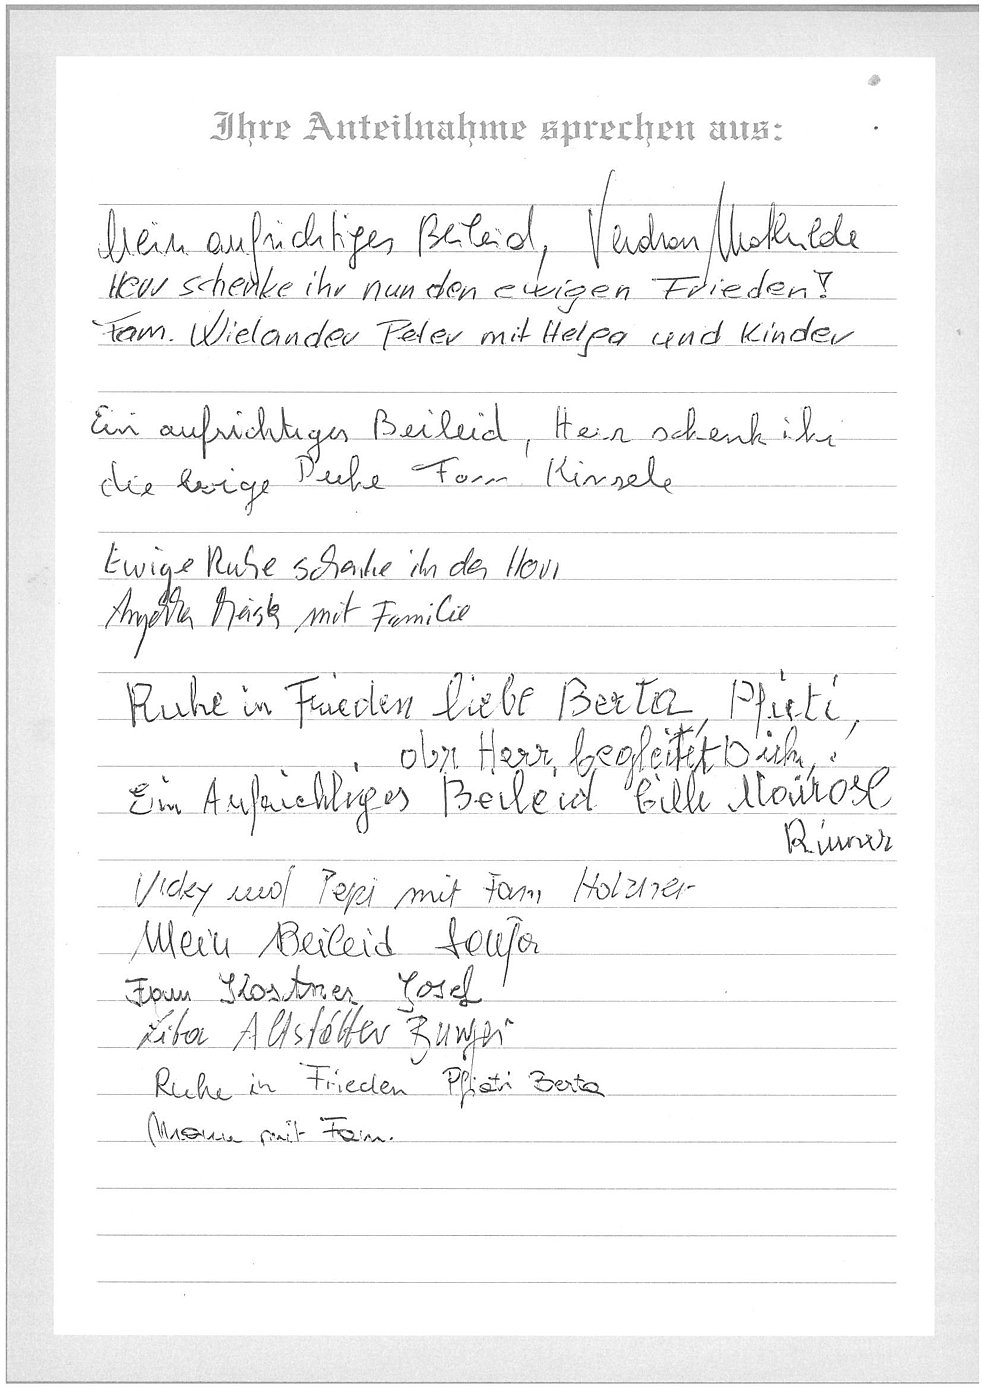 Ihre Anteilnahme sprechen aus:
Mein aufrichtiges Beileid, Mathilde
Herr schenke ihr nun den ewigen Frieden!
Fam. Wielander Peter mit Helga und Kinder
Ein aufrichtiges Beileid, Herr schenk ihr
die ewige Ruhe Fam Kinsele
Ewige Ruhe schenke ihr der Herr
mit Familie
Ruhe in Frieden liebe Berta, Pfieti,
Herr, begleitet Dich,
Ein Aufrichtiges Beileid
Vicky und Pepi mit Fam Holzner
Mein Beileid Sonja
Fam Kostner Josef
Altstätter
Ruhe in Frieden Pfiati Berta
mit Fam.